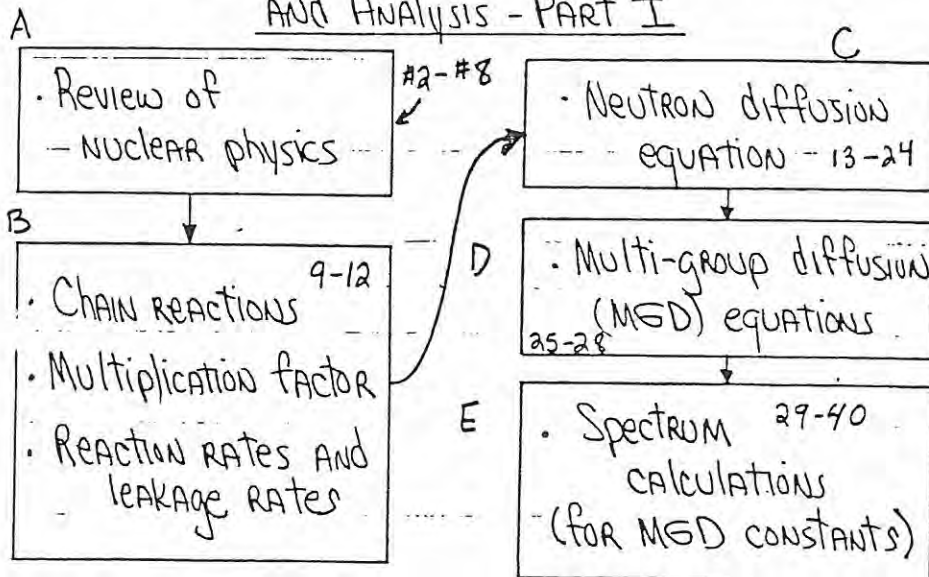 AND ANALYSIS - PART I
A
#2-#8
· Review of
- NUCLEAR physics
B
9-12
· CHAIN REACTIONS
· Multiplication factor
· REACTION RATES AND
leakage RATES
C
· NEUTRON diffusion
equation - 13-24
D
· Multi-group diffusion
(MGD) equations
25-28
E
· Spectrum 29-40
CALCULATIONS
(for MGD CONSTANTS)